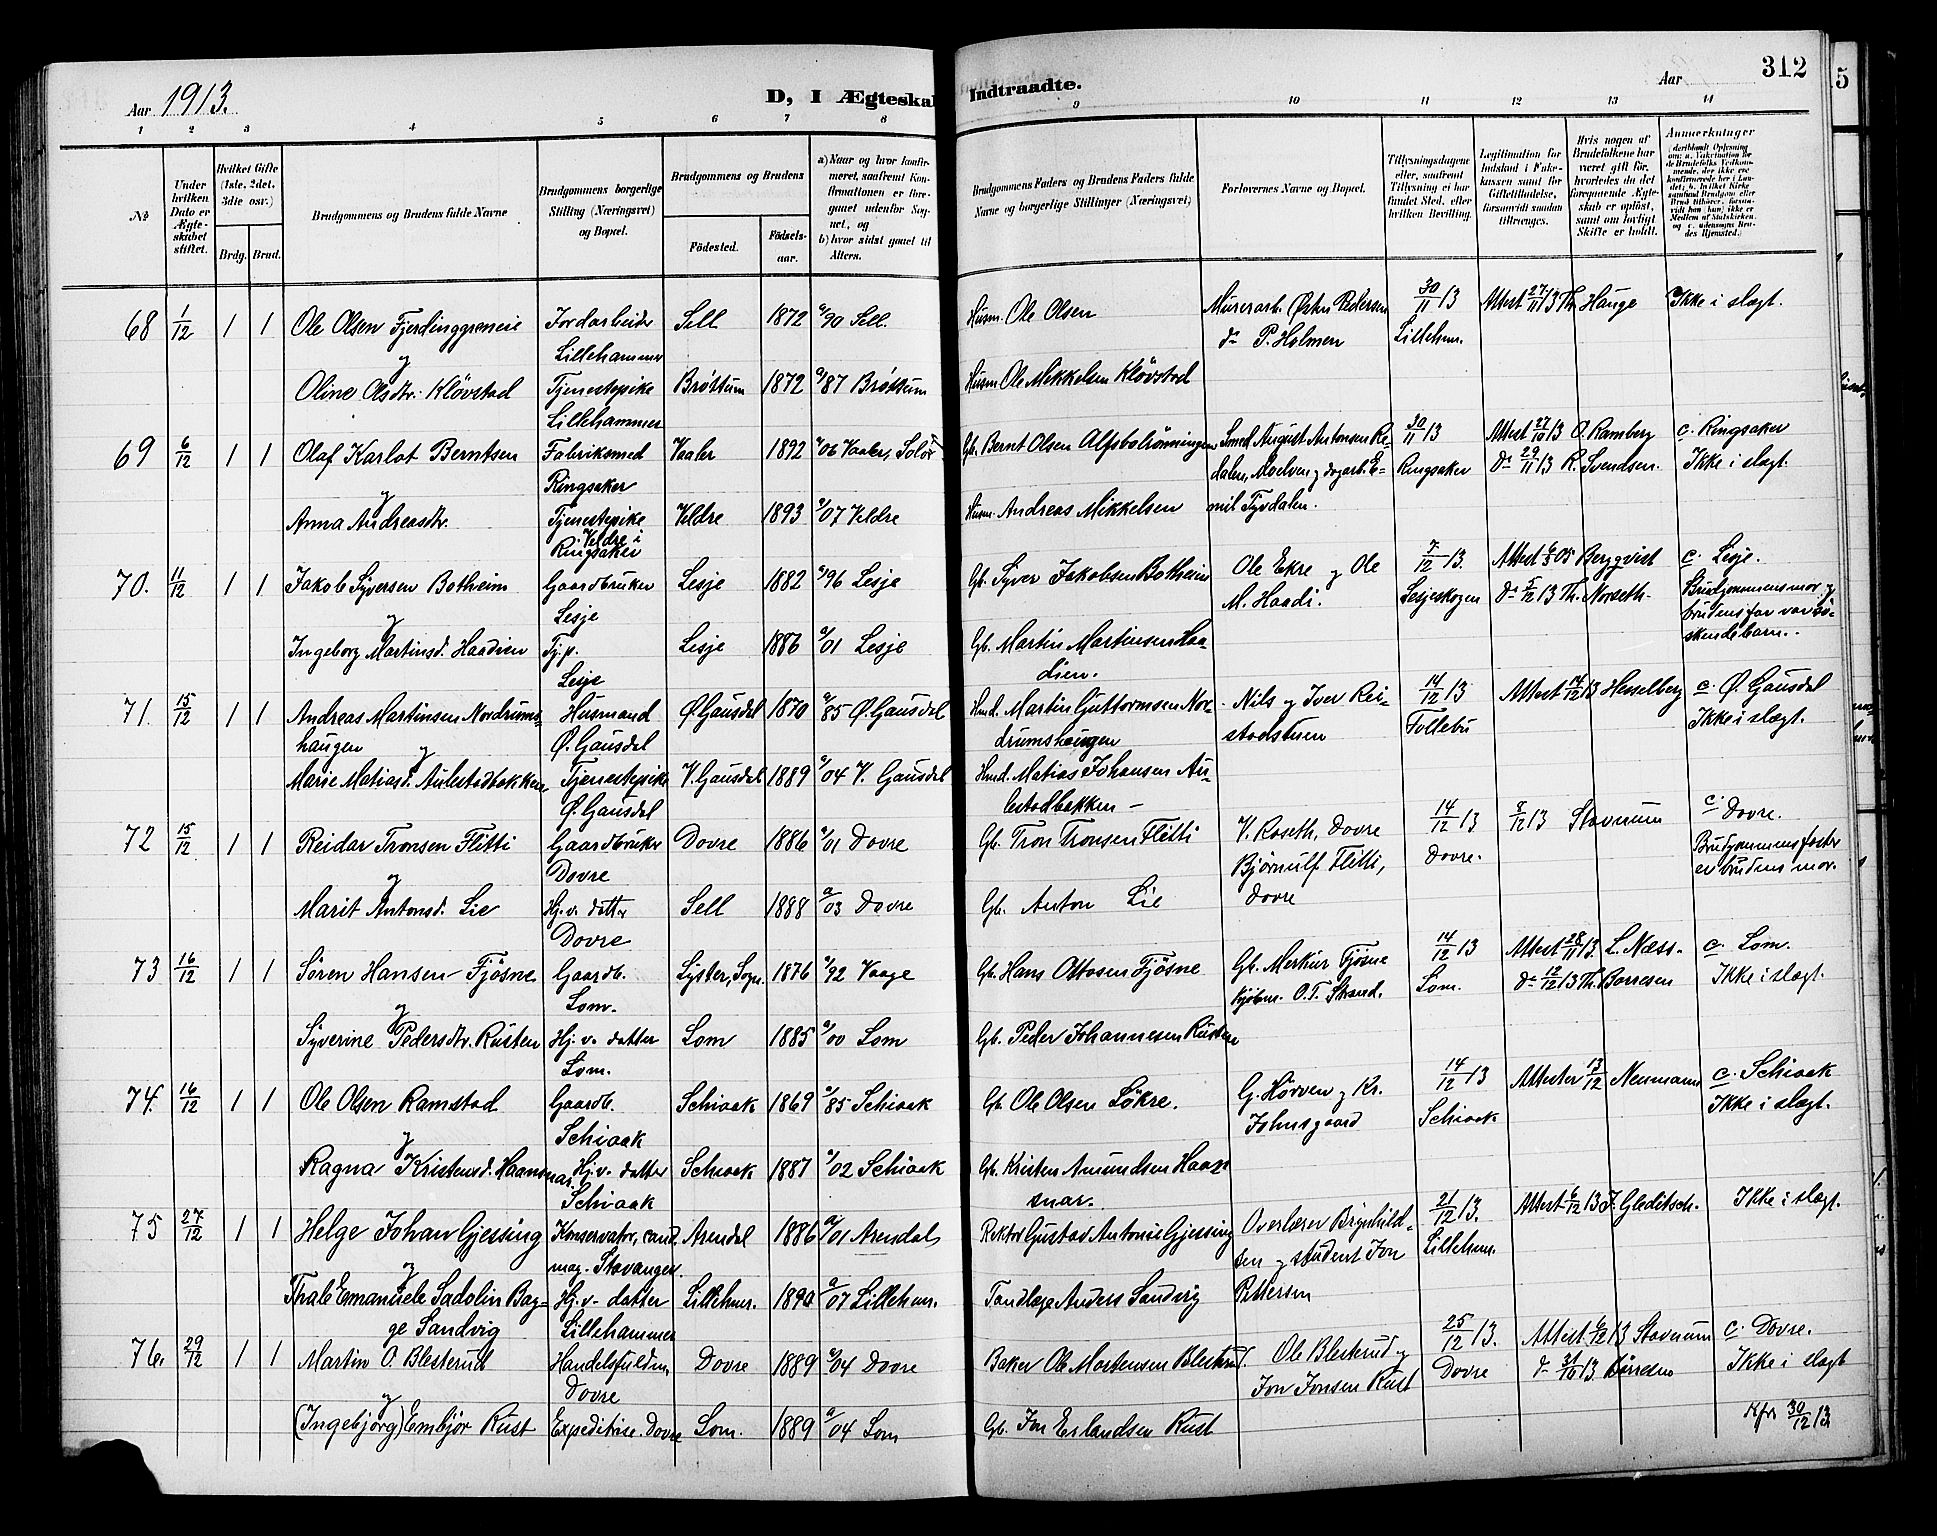 Aar 1913.
D, I Ægteskab Indtraadte.
Aar
312
5
1 2 3 4 5 6 7 8 9 10 11 12 13 14
№
Under hvilken Dato er Ægteskabet stiftet.
Hvilket Gifte (1ste, 2det, 3die osv.)
Brdg. Brud.
Brudgommens og Brudens fulde Navne
Brudgommens borgerlige Stilling (Næringsvei) og Bopæl.
Brudgommens og Brudens
Fødested.
Fødselsaar.
a) Naar og hvor konfirmeret, saafremt Konfirmationen er foregaaet udenfor Sognet, og
b) hvor sidst gaaet til Alters.
Brudgommens Faders og Brudens Faders fulde Navne og borgerlige Stillinger (Næringsvei)
Forlovernes Navne og Bopæl.
Tillysningsdagene eller, saafremt Tillysning ei har fundet Sted, efter hvilken Bevilling.
Legitimation for Indskud i Enkekassen samt for Giftetilladelse, forsaavidt saadan tiltrænges.
Hvis nogen af Brudefolkene har været gift før, hvorledes da det foregaaende Ægteskab er opløst, samt om lovligt Skifte er holdt.
Anmerkninger
68 1/12 1 1 Ole Olsen Fjerdinggreneie Jordarbeider Sell 1872 a/90 Sell. Husm. Ole Olsen Murerarb. Østen Pedersen 30/11 13 Attest 27/11 13 Th. Hauge Ikke i slægt.
og Lillehammer do P. Holmen Lillehm.
Oline Olsdtr. Kløvstad Tjenestepike Brøttum 1872 a/87 Brøttum Husm. Ole Mikkelsen Kløvstad
Lillehammer
69 6/12 1 1 Olaf Karlot Berntsen Fabriksmed Vaaler 1892 a/06 Vaaler, Solør Gb. Bernt Olsen Alfsbolrønningen Smed August Antonsen Re- 30/11 13 Attest 27/10 13 O. Ramberg c. Ringsaker
og Ringsaker dalen, Moelven og dagarb. E- Ringsaker do 29/11 13 R. Svendsen. Ikke i slægt.
Anna Andreasdtr. Tjenestepike Veldre 1893 a/07 Veldre Husm. Andreas Mikkelsen mil Fyrdalen.
Veldre i
Ringsaker
70. 11/12 1 1 Jakob Syversen Botheim Gaardbruker Lesje 1882 a/96 Lesje Gb. Syver Jakobsen Botheim Ole Ekre og Ole 7/12 13. Attest 6/5 05 Bergqvist c. Lesje.
og Lesje M. Haadi. Lesjeskogen do 5/12 13 Th. Norseth. Brudgommens mor og
brudens far var sø-
Ingeborg Martinsd. Haadien Tj.p. Lesje 1886 a/01 Lesje Gb. Martin Martinsen Haa- skendebarn.
Lesje dien.
71. 15/12 1 1 Andreas Martinsen Nordrums- Husmand Ø. Gausdal 1870 a/85 Ø. Gausdal Hmd. Martin Guttormsen Nor- Nils og Iver Rei- 14/12 13 Attest 14/12 13 Hesselberg c. Ø. Gausdal
haugen og Ø. Gausdal drumshaugen stadstuen Follebu Ikke i slægt.
Marie Matiasd. Aulestadbakken Tjenestepike V. Gausdal 1889 a/04 V. Gausdal Hmd. Matias Johansen Au-
Ø. Gausdal lestadbakken –
72 15/12 1 1 Reidar Tronsen Flitti Gaardbruker Dovre 1886 a/01 Dovre Gb. Tron Tronsen Flitti V. Roseth, Dovre 14/12 13 8/12 13 Stavnum c. Dovre.
og Dovre Bjørnulf Flitti, Dovre. Brudgommens faster
Marit Antonsd. Lie Hj.v. datter Sell 1888 a/03 Dovre Gb. Anton Lie Dovre er brudens mor.
Dovre
73 16/12 1 1 Søren Hansen Fjøsne Gaardb. Lyster, Sogn. 1876 a/92 Vaage Gb. Hans Ottosen Fjøsne Gb. Merkur Fjøsne 14/12 13 Attest 28/11 13. L. Næss- c. Lom.
og Lom. Kjøbm. O.T. Strand. Lom. do 12/12 13 Th. Borresen Ikke i slægt.
Syverine Pedersdtr. Rusten Hj. v. datter Lom 1885 a/00 Lom Gb. Peder Johannesen Rusten
Lom.
74. 16/12 1 1 Ole Olsen Ramstad Gaardb. Schiaak 1869 a/85 Schiaak Gb. Ole Olsen Løkre. G. Hørven og Kr. 14/12 13 Attester 13/12 Neumann c. Schiaak
og Schiaak Johnsgaard Schiaak Ikke i slægt.
Ragna Kristensd. Haansnar. Hj.v. datter Schiaak 1887 a/02 Schiaak Gb. Kristen Amundsen Haan-
Schiaak snar.
75 27/12 1 1 Helge Johan Gjessing Konservator, cand. Arendal 1886 a/01 Arendal Rektor Gustav Antonie Gjessing Overlærer Brynhild- 21/12 13. Attest 6/12 13 J. Gleditsch. Ikke i slægt.
og mag. Stavanger. sen og student Jon Lillehm.
Thale Emanuele Sadolin Bag- Hj.v. datter Lillehmr. 1890 a/07 Lillehm. Tandlæge Anders Sandvig Pettersen
ge Sandvig Lillehammer
76. 29/12 1 1 Martin O. Blesterud Handelsfuldm. Dovre 1889 a/04 Dovre Baker Ole Mortensen Blesterud. Ole Blestrud og 25/12 13. Attest. 6/12 13 Stavnum c. Dovre.
og Dovre Jon Jonsen Rust Dovre do 31/10 13. Børresen Ikke i slægt
(Ingebjørg) Embjør Rust Expeditrice. Dovre Lom. 1889 a/04 Lom Gb. Jon Erlandsen Rust 30/12 13